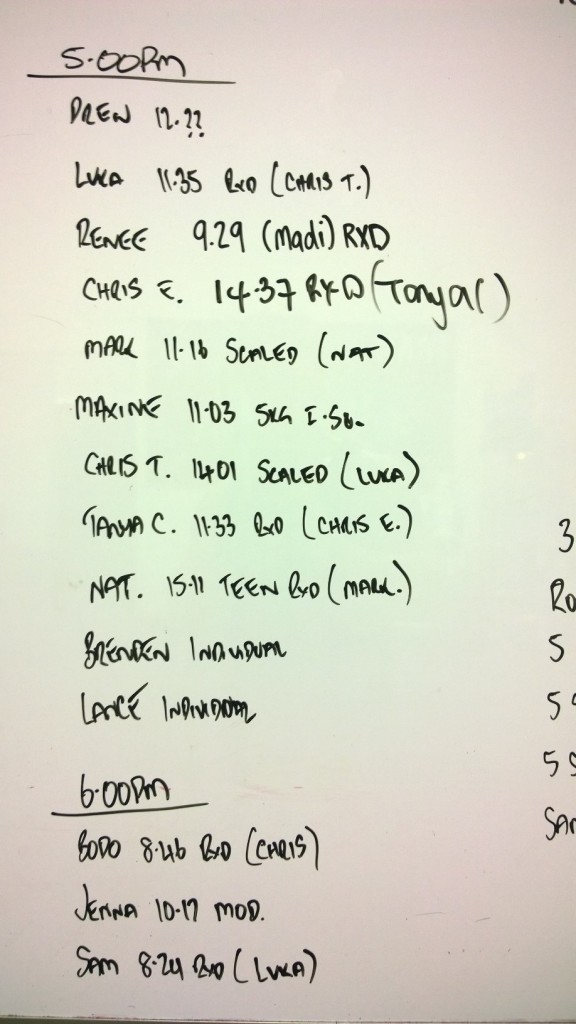 5.00PM
DREN 12.??
LUKA 11.35 RXD (CHRIS T.)
RENEE 9.29 (Madi) RXD
CHRIS E. 14.37 RXD (Tonya C)
MARK 11.16 SCALED (NAT)
MAXINE 11.03 5KG
CHRIS T. 1401 SCALED (LUKA)
TANYA C. 11.33 RXD (CHRIS E.)
NAT. 15.11 TEEN RXD (MARK.)
BRENDEN INDIVIDUAL
LANCE INDIVIDUAL
6.00PM
BODO 8.46 RXD (CHRIS)
JENNA 10.17 MOD.
SAM 8.24 RXD (LUKA)
3
Ro
5
5
5 S
SAM